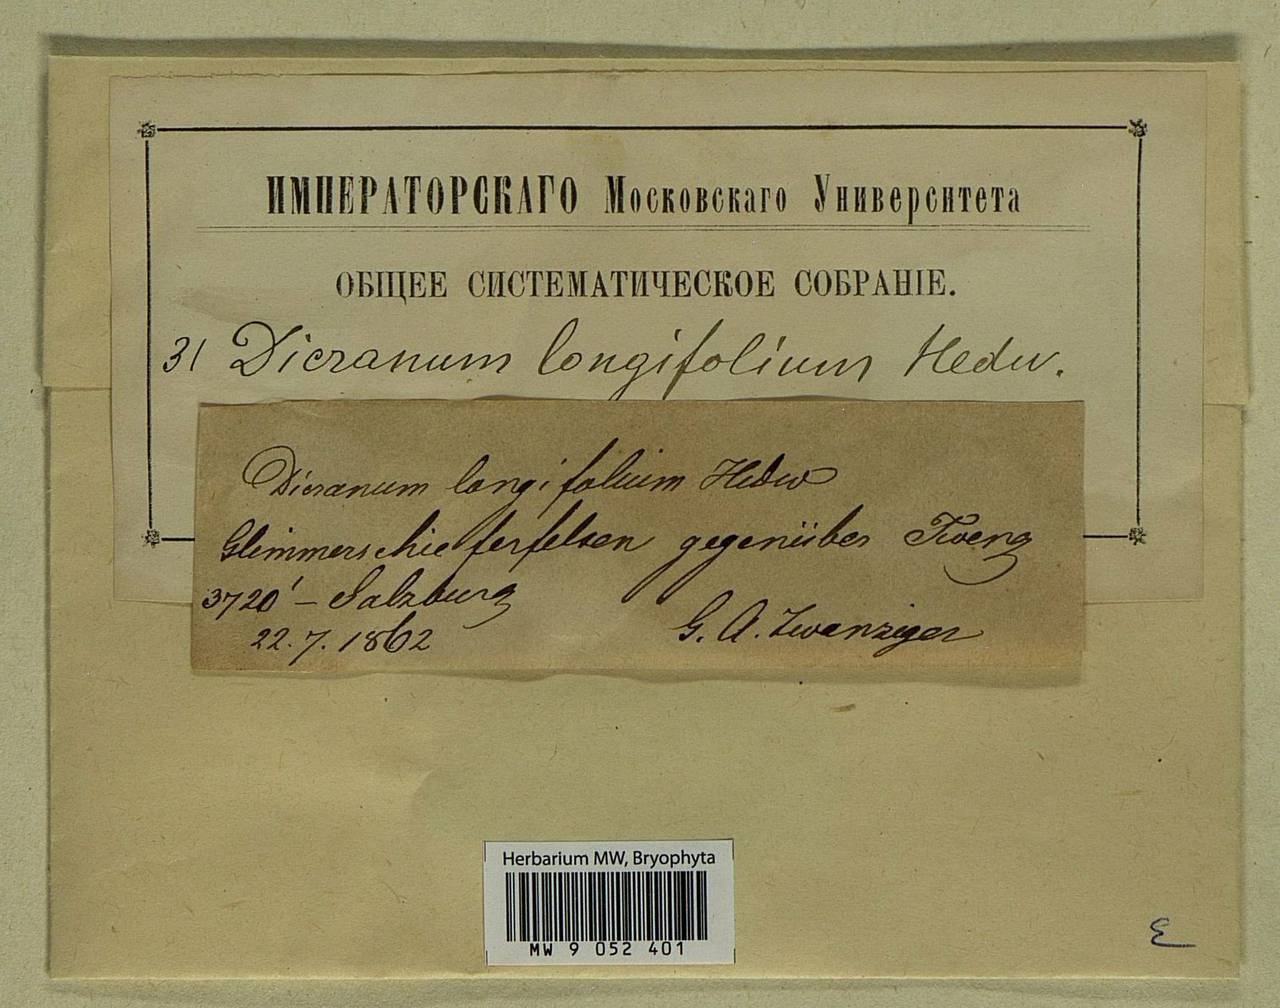 ИМПЕРАТОРСКАГО Московскаго Университета
ОБЩЕЕ СИСТЕМАТИЧЕСКОЕ СОБРАНІЕ.
31 Dicranum longifolium Hedw.
Dicranum longifolium Hedw
Glimmerschieferfelsen gegenüber Tweng
3720' - Salzburg
22.7.1862 G. A. Zwanziger
Herbarium MW, Bryophyta
MW 9 052 401
ε